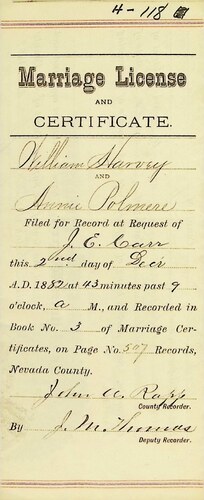 4-118
Marriage License
AND
CERTIFICATE.
William Harvey
AND
Annie Polmere
Filed for Record at Request of
J. E. Carr
this 2nd day of Decr
A.D. 1882 at 43 minutes past 9
o'clock, a M., and Recorded in
Book No. 3 of Marriage Cer-
tificates, on Page No. 507 Records,
Nevada County.
John A. Rapp
County Recorder.
By J. M. Thomas
Deputy Recorder.